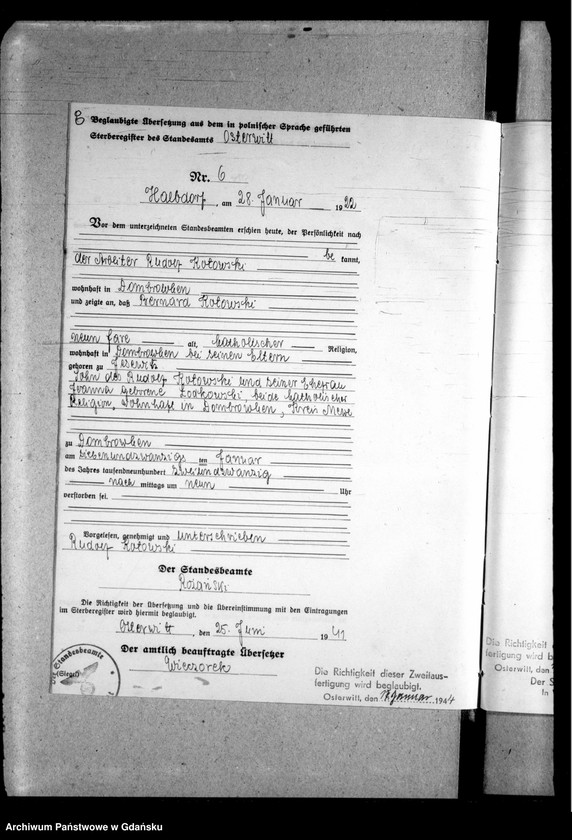 Beglaubigte Übersetzung aus dem in polnischer Sprache geführten
Sterberegister des Standesamts Osterwitt
Nr. 6
Halbdorf, am 28. Januar 1922
Vor dem unterzeichneten Standesbeamten erschien heute, der Persönlichkeit nach
be kannt,
der Arbeiter Rudolf Kotowski
wohnhaft in Dombrowken
und zeigte an, daß Bernard Kotowski
neun Jare alt, katholischer Religion,
wohnhaft in Dombrowken bei seinen Eltern
geboren zu
Sohn des Rudolf Kotowski und seiner Ehefrau
Joanna geborene beide katholischer
Religion, Wohnhaft in Dombrowken, Kreis Mewe
zu Dombrowken
am siebenundzwanzigs ten Januar
des Jahres tausendneunhundert zweiundzwanzig
nach mittags um neun Uhr
verstorben sei.
Vorgelesen, genehmigt und unterschrieben
Rudolf Kotowski
Der Standesbeamte
Rozański
Die Richtigkeit der Übersetzung und die Übereinstimmung mit den Eintragungen
im Sterberegister wird hiermit beglaubigt.
Osterwitt, den 25. Juni 1941
Der amtlich beauftragte Übersetzer
Wieczorek
Standesbeamte
(Siegel)
Die Richtigkeit dieser Zweitaus-
fertigung wird beglaubigt.
Osterwitt, den Januar 1944
Die Richtigkeit
fertigung wird b
Osterwitt, den
Der S
In
Archiwum Państwowe w Gdańsku